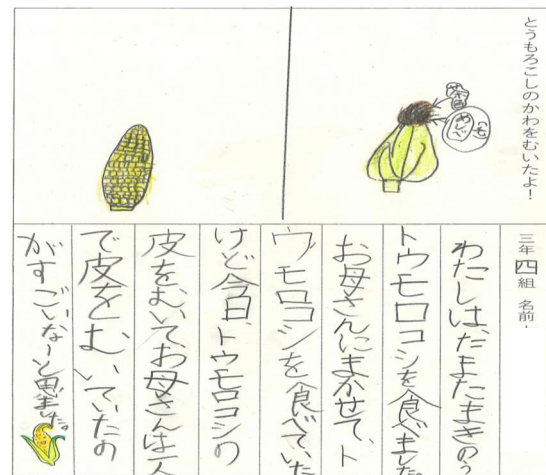 とうもろこしのかわをむいたよ!
茶色
毛
めしべ
三年四組 名前
わたしは、たまたまきのう
トウモロコシを食べました。
お母さんにまかせて、ト
ウモロコシを食べていた
けど今日、トウモロコシの
皮をむいてお母さんは一人
で皮をむいていたの
がすごいなーと思いました。